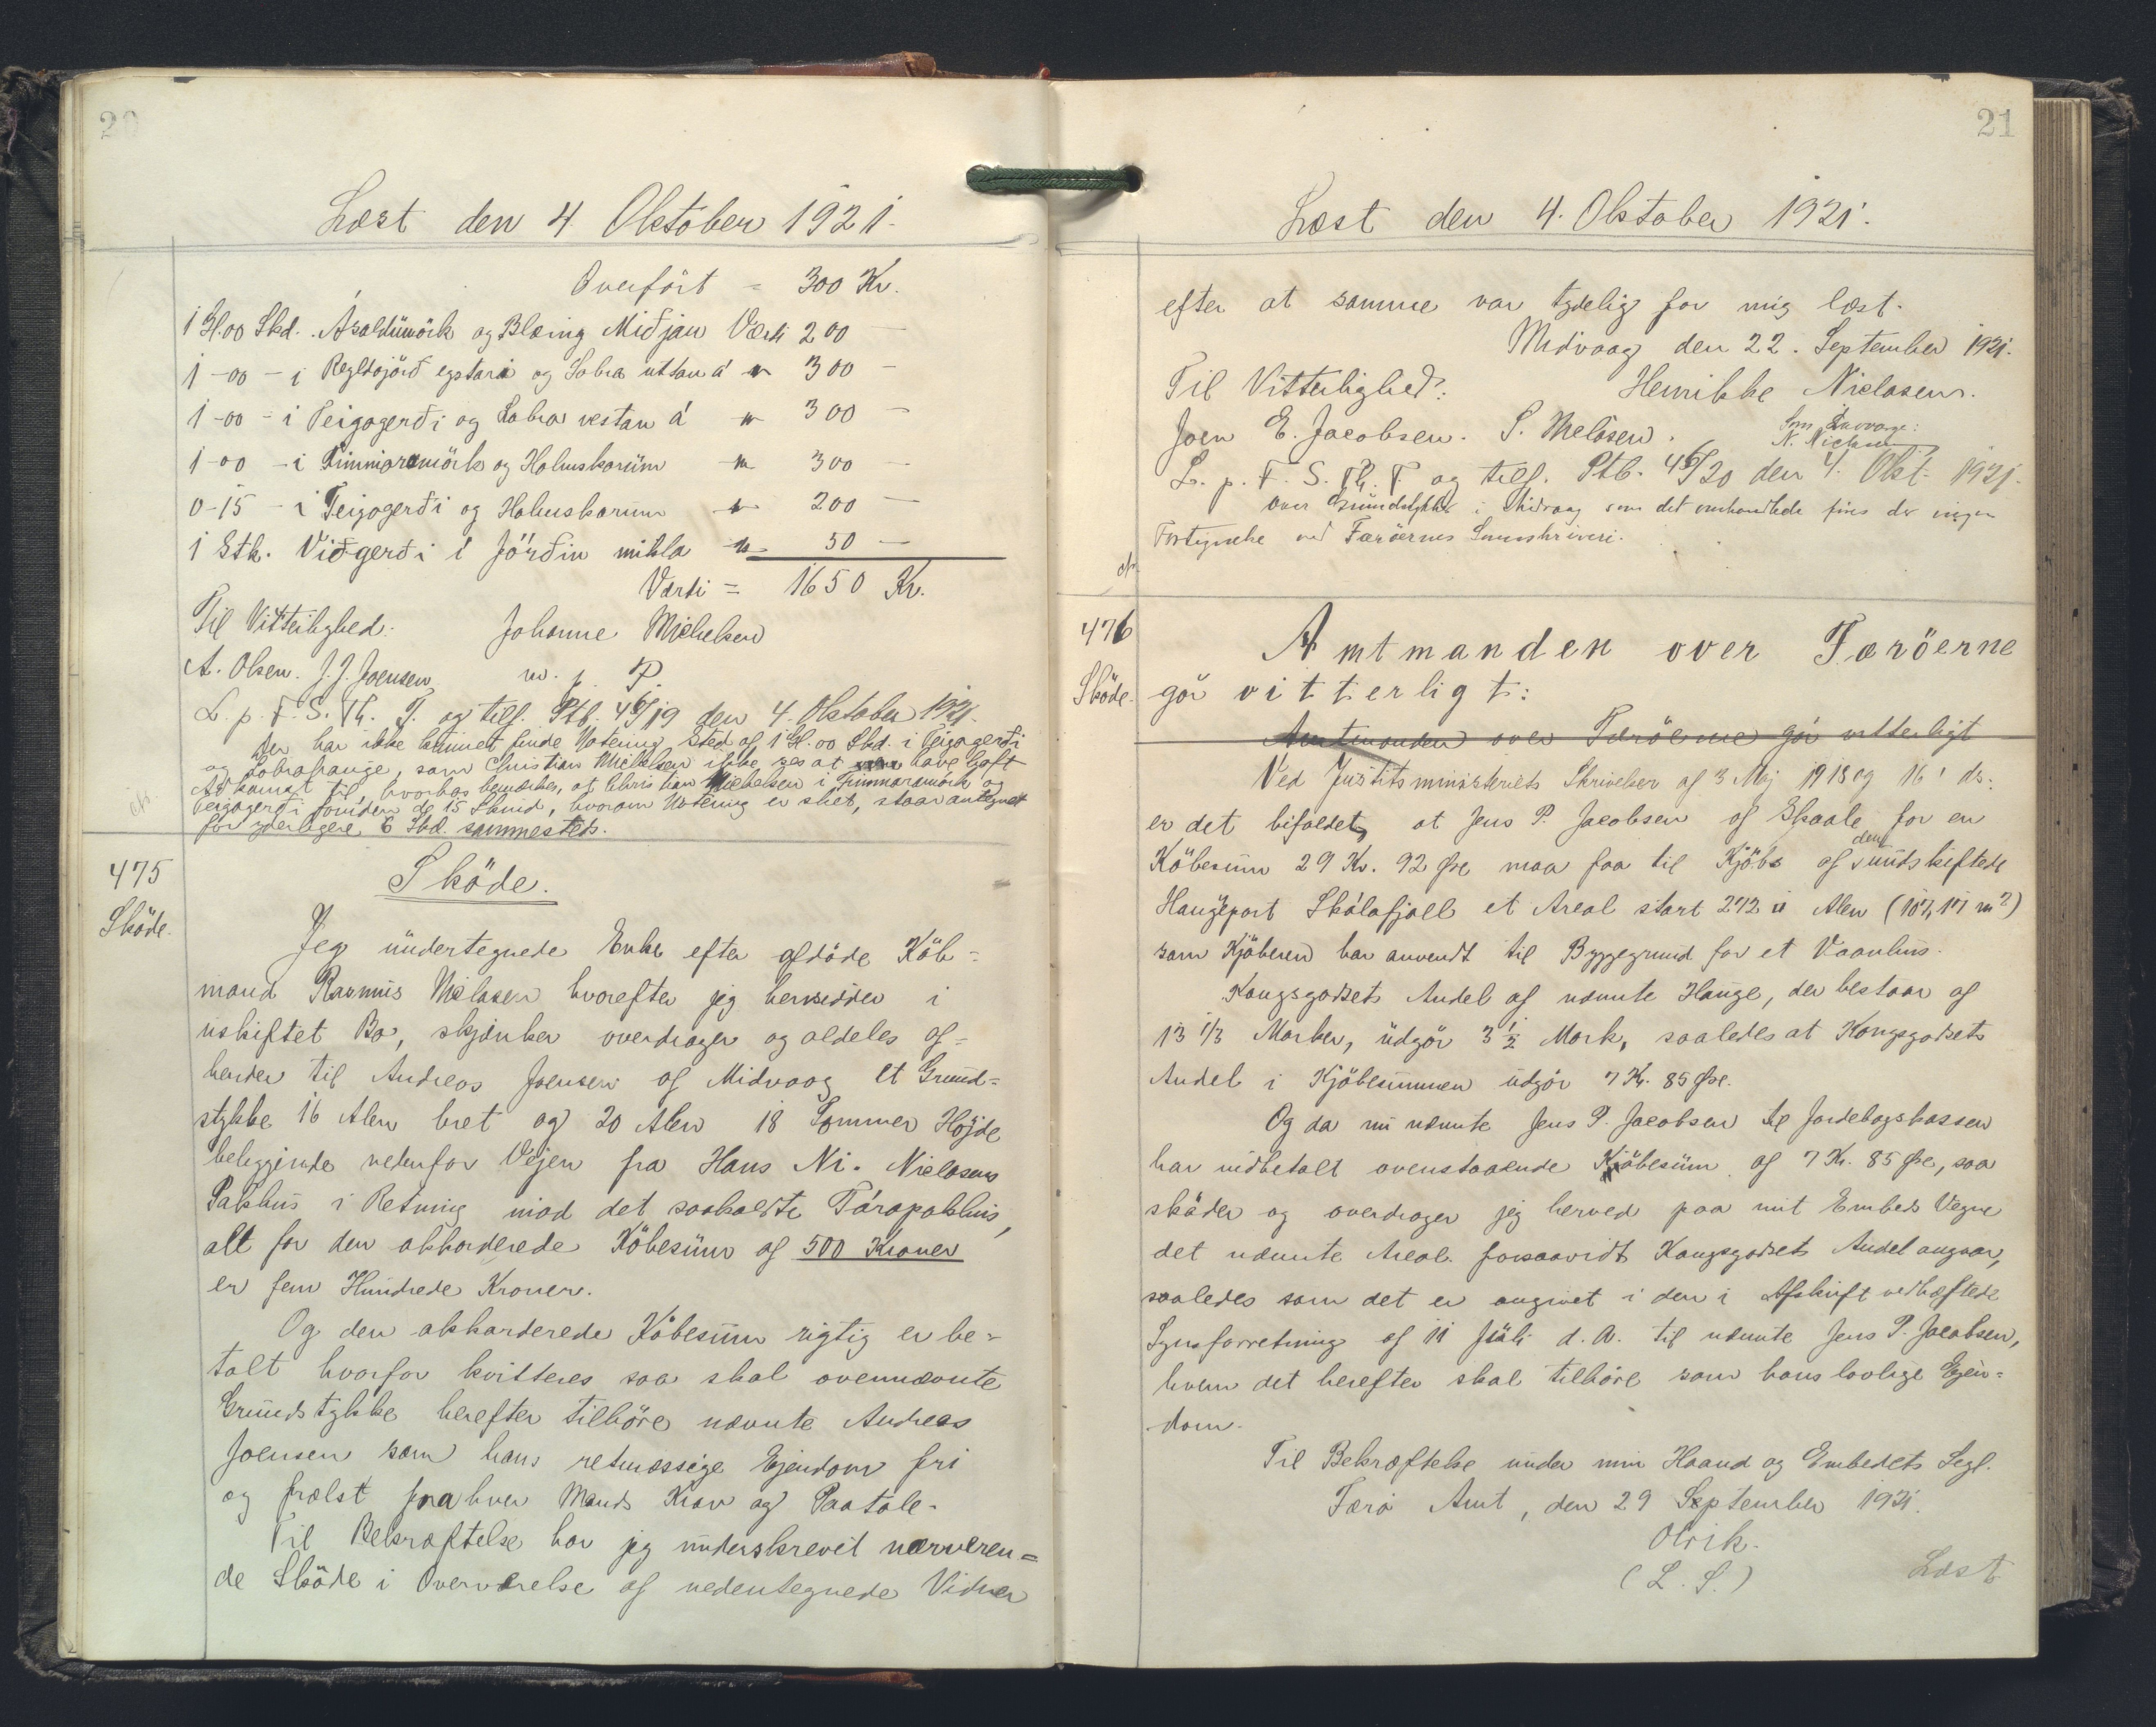 20
Læst den 4. Oktober 1921.
Overfört = 300 Kr.
1 Gl. 00 Skd. Ásaldümörk og Blæing Miðjan Værdi 200 —
1 - 00 - i Regldojörð egstari og Labra uttan á " 300 —
1 - 00 - i Teigagerði og Labra vestan á " 300 —
1 - 00 - i Timmaramörk og Holmskorüm " 300 —
0 - 15 - i Teigagerði og Holmskorum " 200 —
1 Stk. Viðgerði i Jörðin mikla " 50 —
Værdi = 1650 Kr.
Til Vitterlighed: Johanne Michelsen
A. Olsen. J. J. Joensen m. p. P.
L. p. F. S. Th. T. og tilf. Ptb. 46/19 den 4. Oktober 1921.
Der har ikke kunnet finde Notering Sted af 1 Gl. 00 Skd. i Teigagerði
og Labrahauge, som Christian Michelsen ikke ses at have haft
Adkomst til, hvorhos bemærkes, at Christian Michelsen i Timmaramörk og
Teigagerði foruden de 15 Skind, hvorom Notering er sket, staar antegnet
for yderligere 6 Skd. sammesteds.
475
Sköde.
Sköde.
Jeg undertegnede Enke efter afdöde Köb=
mand Rasmus Niclasen hvorefter jeg hensidder i
uskiftet Bo, skjønker overdrager og aldeles af=
hender til Andreas Joensen af Midvaag et Grund=
stykke 16 Alen bret og 20 Alen 18 Tommer Höjde
beliggende nedenfor Vejen fra Hans Ni. Niclasens
Pakhus i Retning mod det saakaldte Tárapakhus,
alt for den akkorderede Köbesum af 500 Kroner
er fem Hundrede Kroner.
Og den akkorderede Köbesum rigtig er be=
talt hvorfor kvitteres saa skal ovennævnte
Grundstykke herefter tilhöre nævnte Andreas
Joensen som hans retmæssige Ejendom fri
og frælst fra hver Mands Krav og Paatale.
Til Bekræftelse har jeg underskrevet nærveren=
de Sköde i Overværelse af nedentegnede Vidner
21
Læst den 4. Oktober 1921.
efter at samme var tydelig for mig læst.
Midvaag den 22. September 1921.
Til Vitterlighed: Henrikke Niclasen.
Joen E. Jacobsen. S. Nielsen. Som Lavværge:
N. Niclasen
L. p. F. S. Th. T. og tilf. Ptb. 46/20 den 4. Okt. 1921.
Over Grundstykker i Midvaag som det omhandlede fins der ingen
Fortegnelse ved Færöernes Sorenskriveri.
476
Sköde.
Amtmanden over Færöerne
gör vitterligt:
Amtmanden over Færöerne gör vitterligt
Ved Justitsministeriets Skrivelser af 3 Maj 1918 og 16' ds.
er det bifaldet, at Jens P. Jacobsen af Skaale for en
Köbesum 29 Kr. 92 Øre maa faa til Kjöbs af den uudskiftede
Haugepart Skálafjall et Areal stort 272 □ Alen (107,17 m²)
som Kjöberen har anvendt til Byggegrund for et Vaanhus.
Kongsgodsets Andel af nævnte Hauge, der bestaar af
13 1/3 Marker, udgör 3 1/2 Mark, saaledes at Kongsgodsets
Andel i Kjöbesummen udgör 7 Kr. 85 Øre.
Og da nu nævnte Jens P. Jacobsen til Jordebogskassen
har indbetalt ovenstaaende Kjöbesum af 7 Kr. 85 Øre, saa
sköder og overdrager jeg herved paa mit Embeds Vegne
det nævnte Areal forsaavidt Kongsgodsets Andel angaar,
saaledes som det er angivet i den i Afskrift vedhæftede
Synsforretning af 11 Juli d. A. til nævnte Jens P. Jacobsen,
hvem det herefter skal tilhöre som hans lovlige Ejen=
dom.
Til Bekræftelse under min Haand og Embedets Segl.
Færö Amt, den 29 September 1921.
Olrik.
(L. S.) Læst